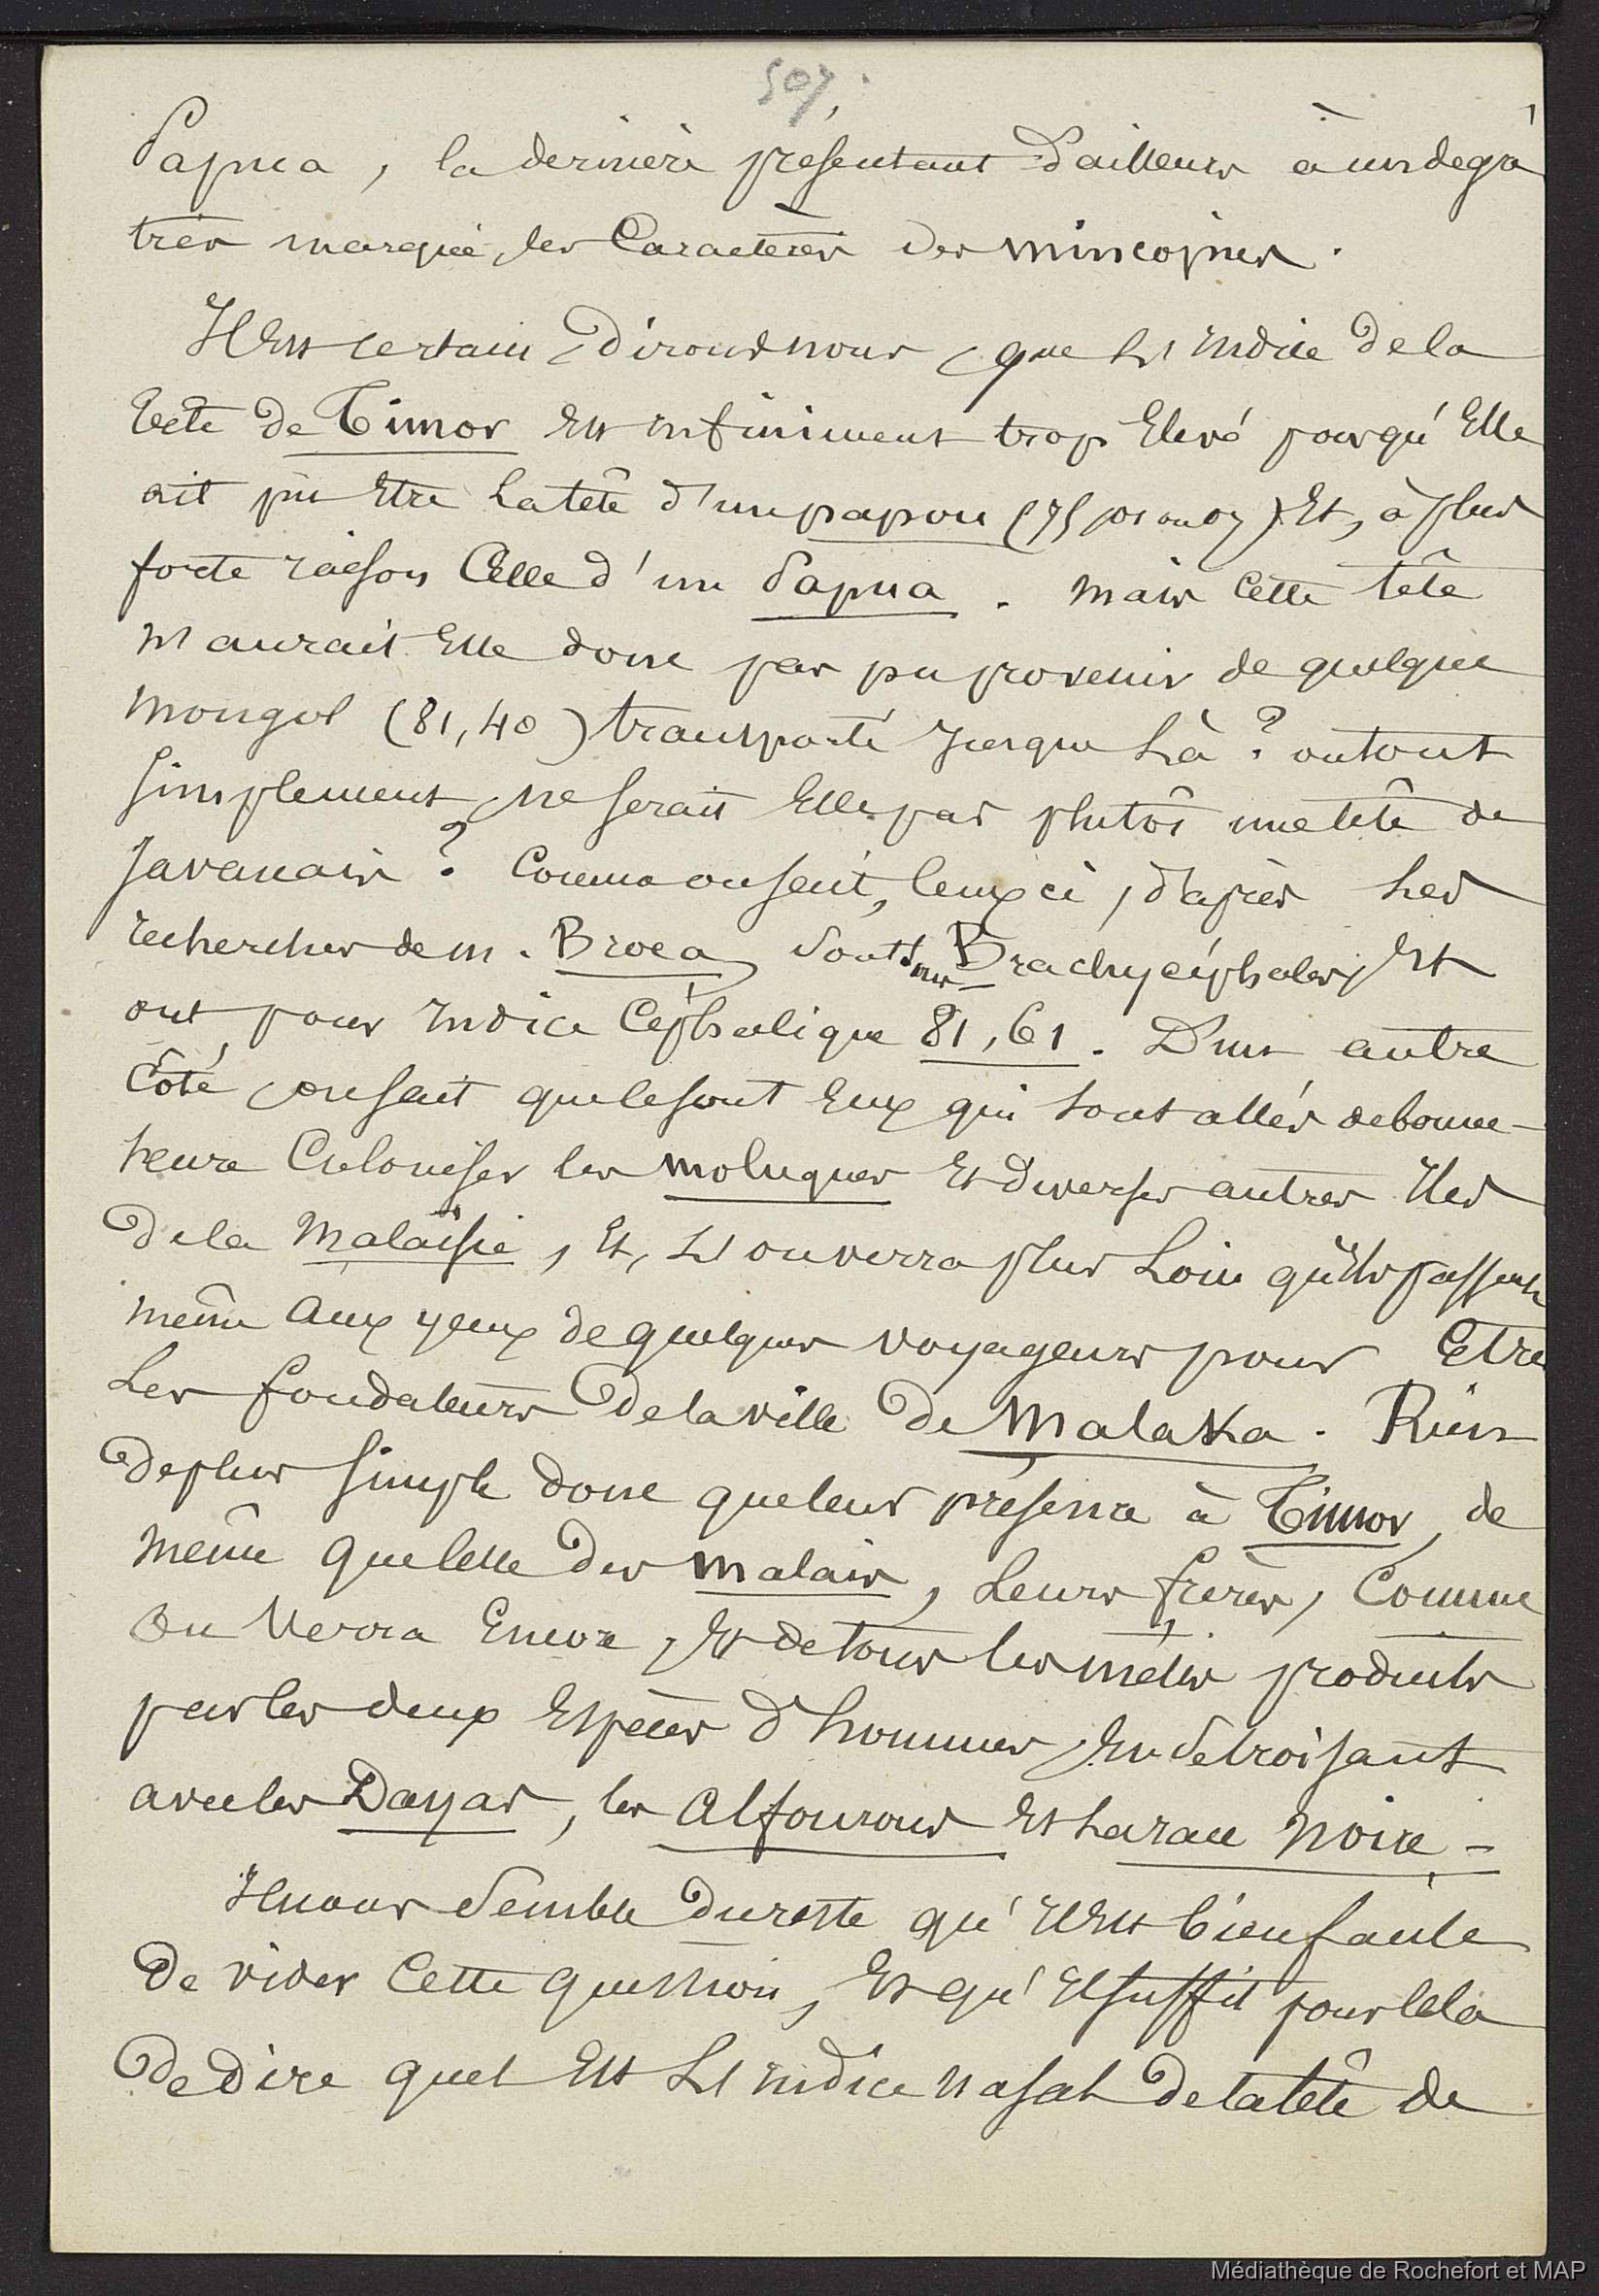 507.
Papua, la dernière présentant d'ailleurs à un degré
très marqué, les Caractères des mincopies.
Il Est certain, dirons nous, que L'Indice de la
tête de Timor Est Infiniment trop Elevé pour qu'Elle
ait pu Etre La tête d'un papou (75, ou) Et, à plus
forte raison Celle d'un Papua. Mais Cette tête
N'aurait Elle donc pas pu provenir de quelque
Mongol (81,40) transporté Jusque Là ? ou tout
Simplement, ne serait Elle pas plutôt une tête de
Javanais ? Comme on sait, Ceux ci, d'après Les
recherches de M. Broca, Sont Brachycéphales, Et
ont pour Indice Céphalique 81,61. D'un autre
Côté, on sait que Ce sont Eux qui Sont allés de bonne
heure Coloniser les Moluques Et diverses autres Iles
de la Malaisie, Et, L'on verra plus Loin qu'Ils passent
même aux yeux de quelques voyageurs pour Etre
Les fondateurs de la ville de Malaka. Rien
de plus Simple donc que leur présence à Timor, de
même que Celle des malais, Leurs frères, Comme
On Verra Encore, Et de tous les métis produits
par les deux Espèces d'hommes, En Se Croisant
avec les Dayas, les Alfourous Et La race Noire -
Il nous Semble du reste qu'Il Est bien facile
De vider Cette question, Et qu'Il suffit pour Cela
De Dire quel Est L'Indice Nasal De la tête de
Médiathèque de Rochefort et MAP